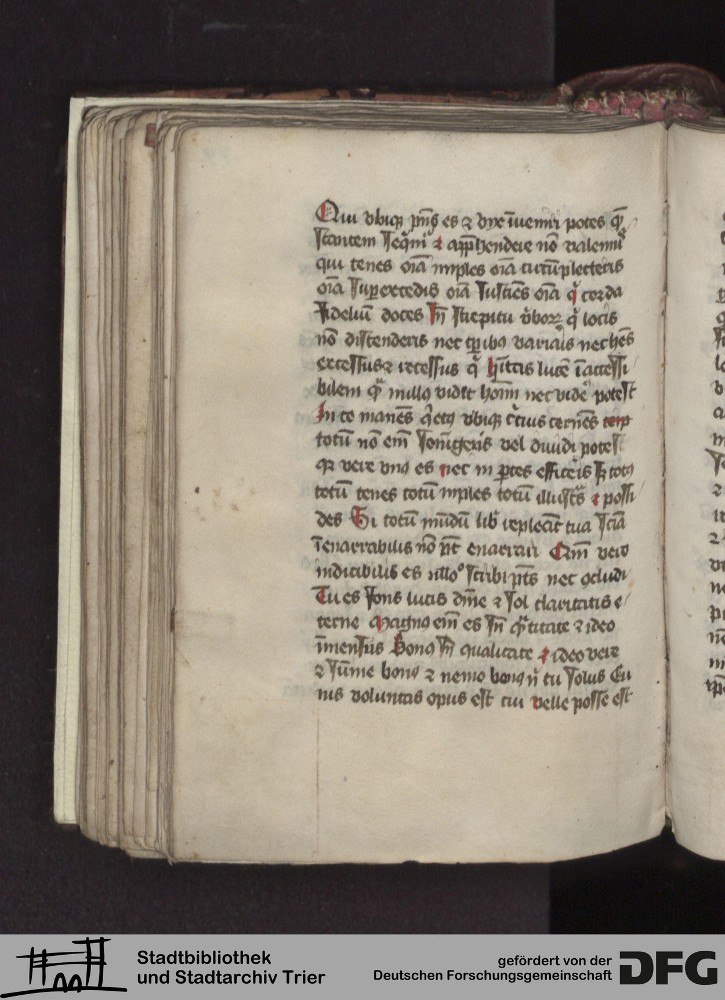 Qui vbiqȝ p̄ns es ⁊ vix īuenir̄ potes qͣ̄
stantem seqͥmͬ ⁊ app̄hendere nō valemꝰ
qui tenes oīa imples oīa circūplecteris
oīa suꝑexcedis oīa sustīes oīa qͥ corda
fideliū doces sn̄ strepitu v̓boꝝ qͥ locis
nō distenderis nec tꝑibꝰ variaris nec hēs
excessus ⁊ recessus qͥ hītas lucē īaccessi
bilem qͣ̄ nullꝰ vidit hom̄ nec vide potest
In te manēs qͥetꝰ vbiqȝ c̓cuis cernēs
totū nō em̄ diuidi potest
qꝛ vere vnꝰ es nec in ꝑtes efficeris sꝫ totꝰ
totū tenes totū imples totū illustͣs ⁊ possi
des Si totū mūdū lib̓ repleāt tua sciā
īenarrabilis nō pt̄ enarrari Qm̄ vero
indicibilis es nllo° scribi ptēs nec ↄcludi
Tu es fons lucis dn̄e ⁊ sol claritatis e
terne Magnꝰ em̄ es sn̄ qͣtitate ⁊ ideo
īmensus Bonꝰ sn̄ qualitate ⁊ ideo vere
⁊ sūme bonꝰ ⁊ nemo bonꝰ nͥ tu solus Cu
ius voluntas opus est cui velle posse est
Stadtbibliothek
und Stadtarchiv Trier
gefördert von der
Deutschen Forschungsgemeinschaft
DFG